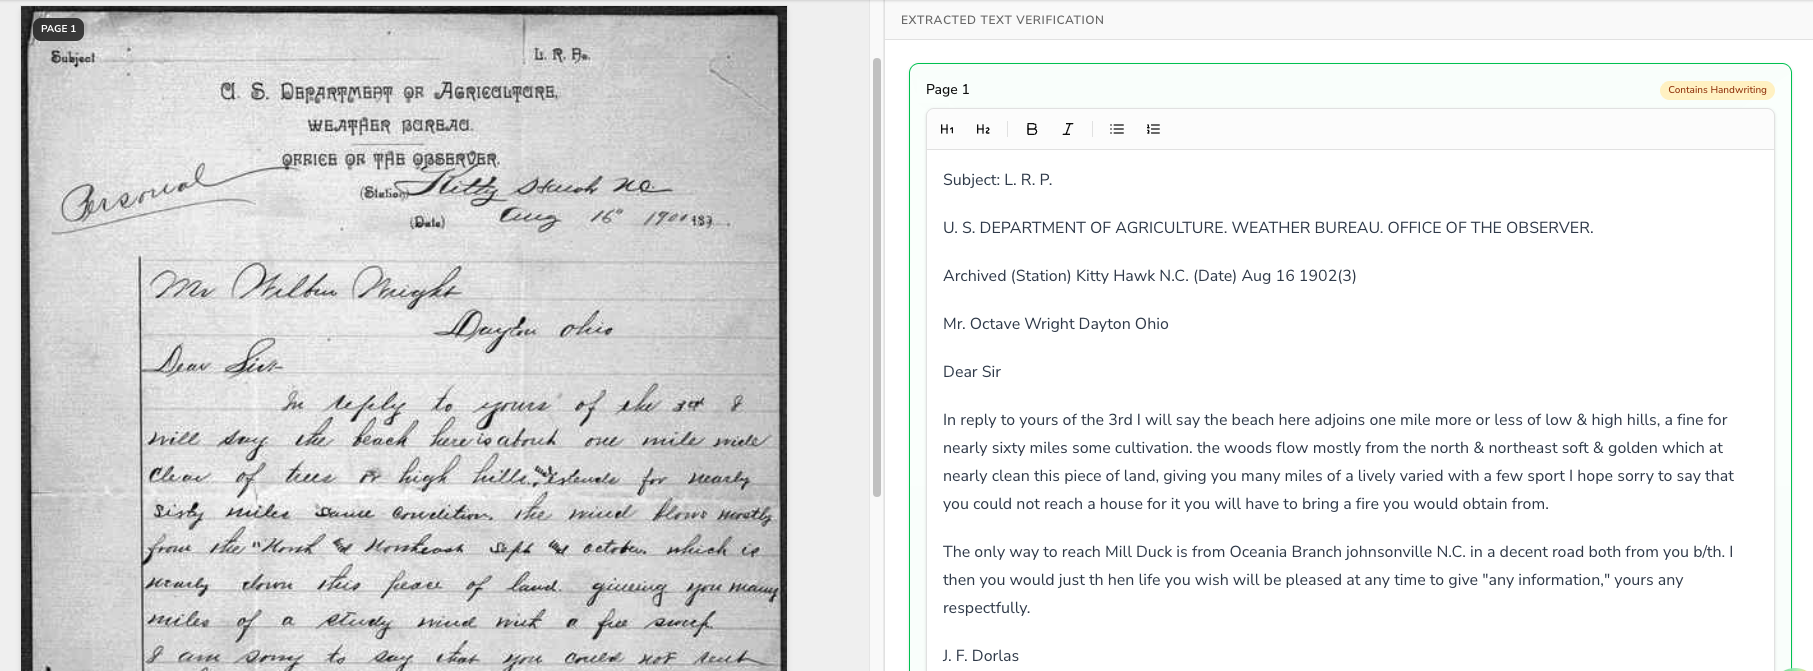 PAGE 1
Subject
L. R. No.
U. S. DEPARTMENT OF AGRICULTURE,
WEATHER BUREAU.
OFFICE OF THE OBSERVER.
Personal
(Station) Kitty Hawk NC
(Date) Aug 16" 1900 189
Mr Wilbur Wright
Dayton Ohio
Dear Sir
In reply to yours of the 3rd I
will say the beach here is about one mile wide
clear of trees or high hills, and extends for nearly
sixty miles same condition. the wind blows mostly
from the "North and Northeast Sept and october. which is
nearly down this peace of land. giveing you many
miles of a study wind with a free sweep.
I am sorry to say that you could not rent
EXTRACTED TEXT VERIFICATION
Page 1
Contains Handwriting
H1 H2 B I
Subject: L. R. P.
U. S. DEPARTMENT OF AGRICULTURE. WEATHER BUREAU. OFFICE OF THE OBSERVER.
Archived (Station) Kitty Hawk N.C. (Date) Aug 16 1902(3)
Mr. Octave Wright Dayton Ohio
Dear Sir
In reply to yours of the 3rd I will say the beach here adjoins one mile more or less of low & high hills, a fine for
nearly sixty miles some cultivation. the woods flow mostly from the north & northeast soft & golden which at
nearly clean this piece of land, giving you many miles of a lively varied with a few sport I hope sorry to say that
you could not reach a house for it you will have to bring a fire you would obtain from.
The only way to reach Mill Duck is from Oceania Branch johnsonville N.C. in a decent road both from you b/th. I
then you would just th hen life you wish will be pleased at any time to give "any information," yours any
respectfully.
J. F. Dorlas